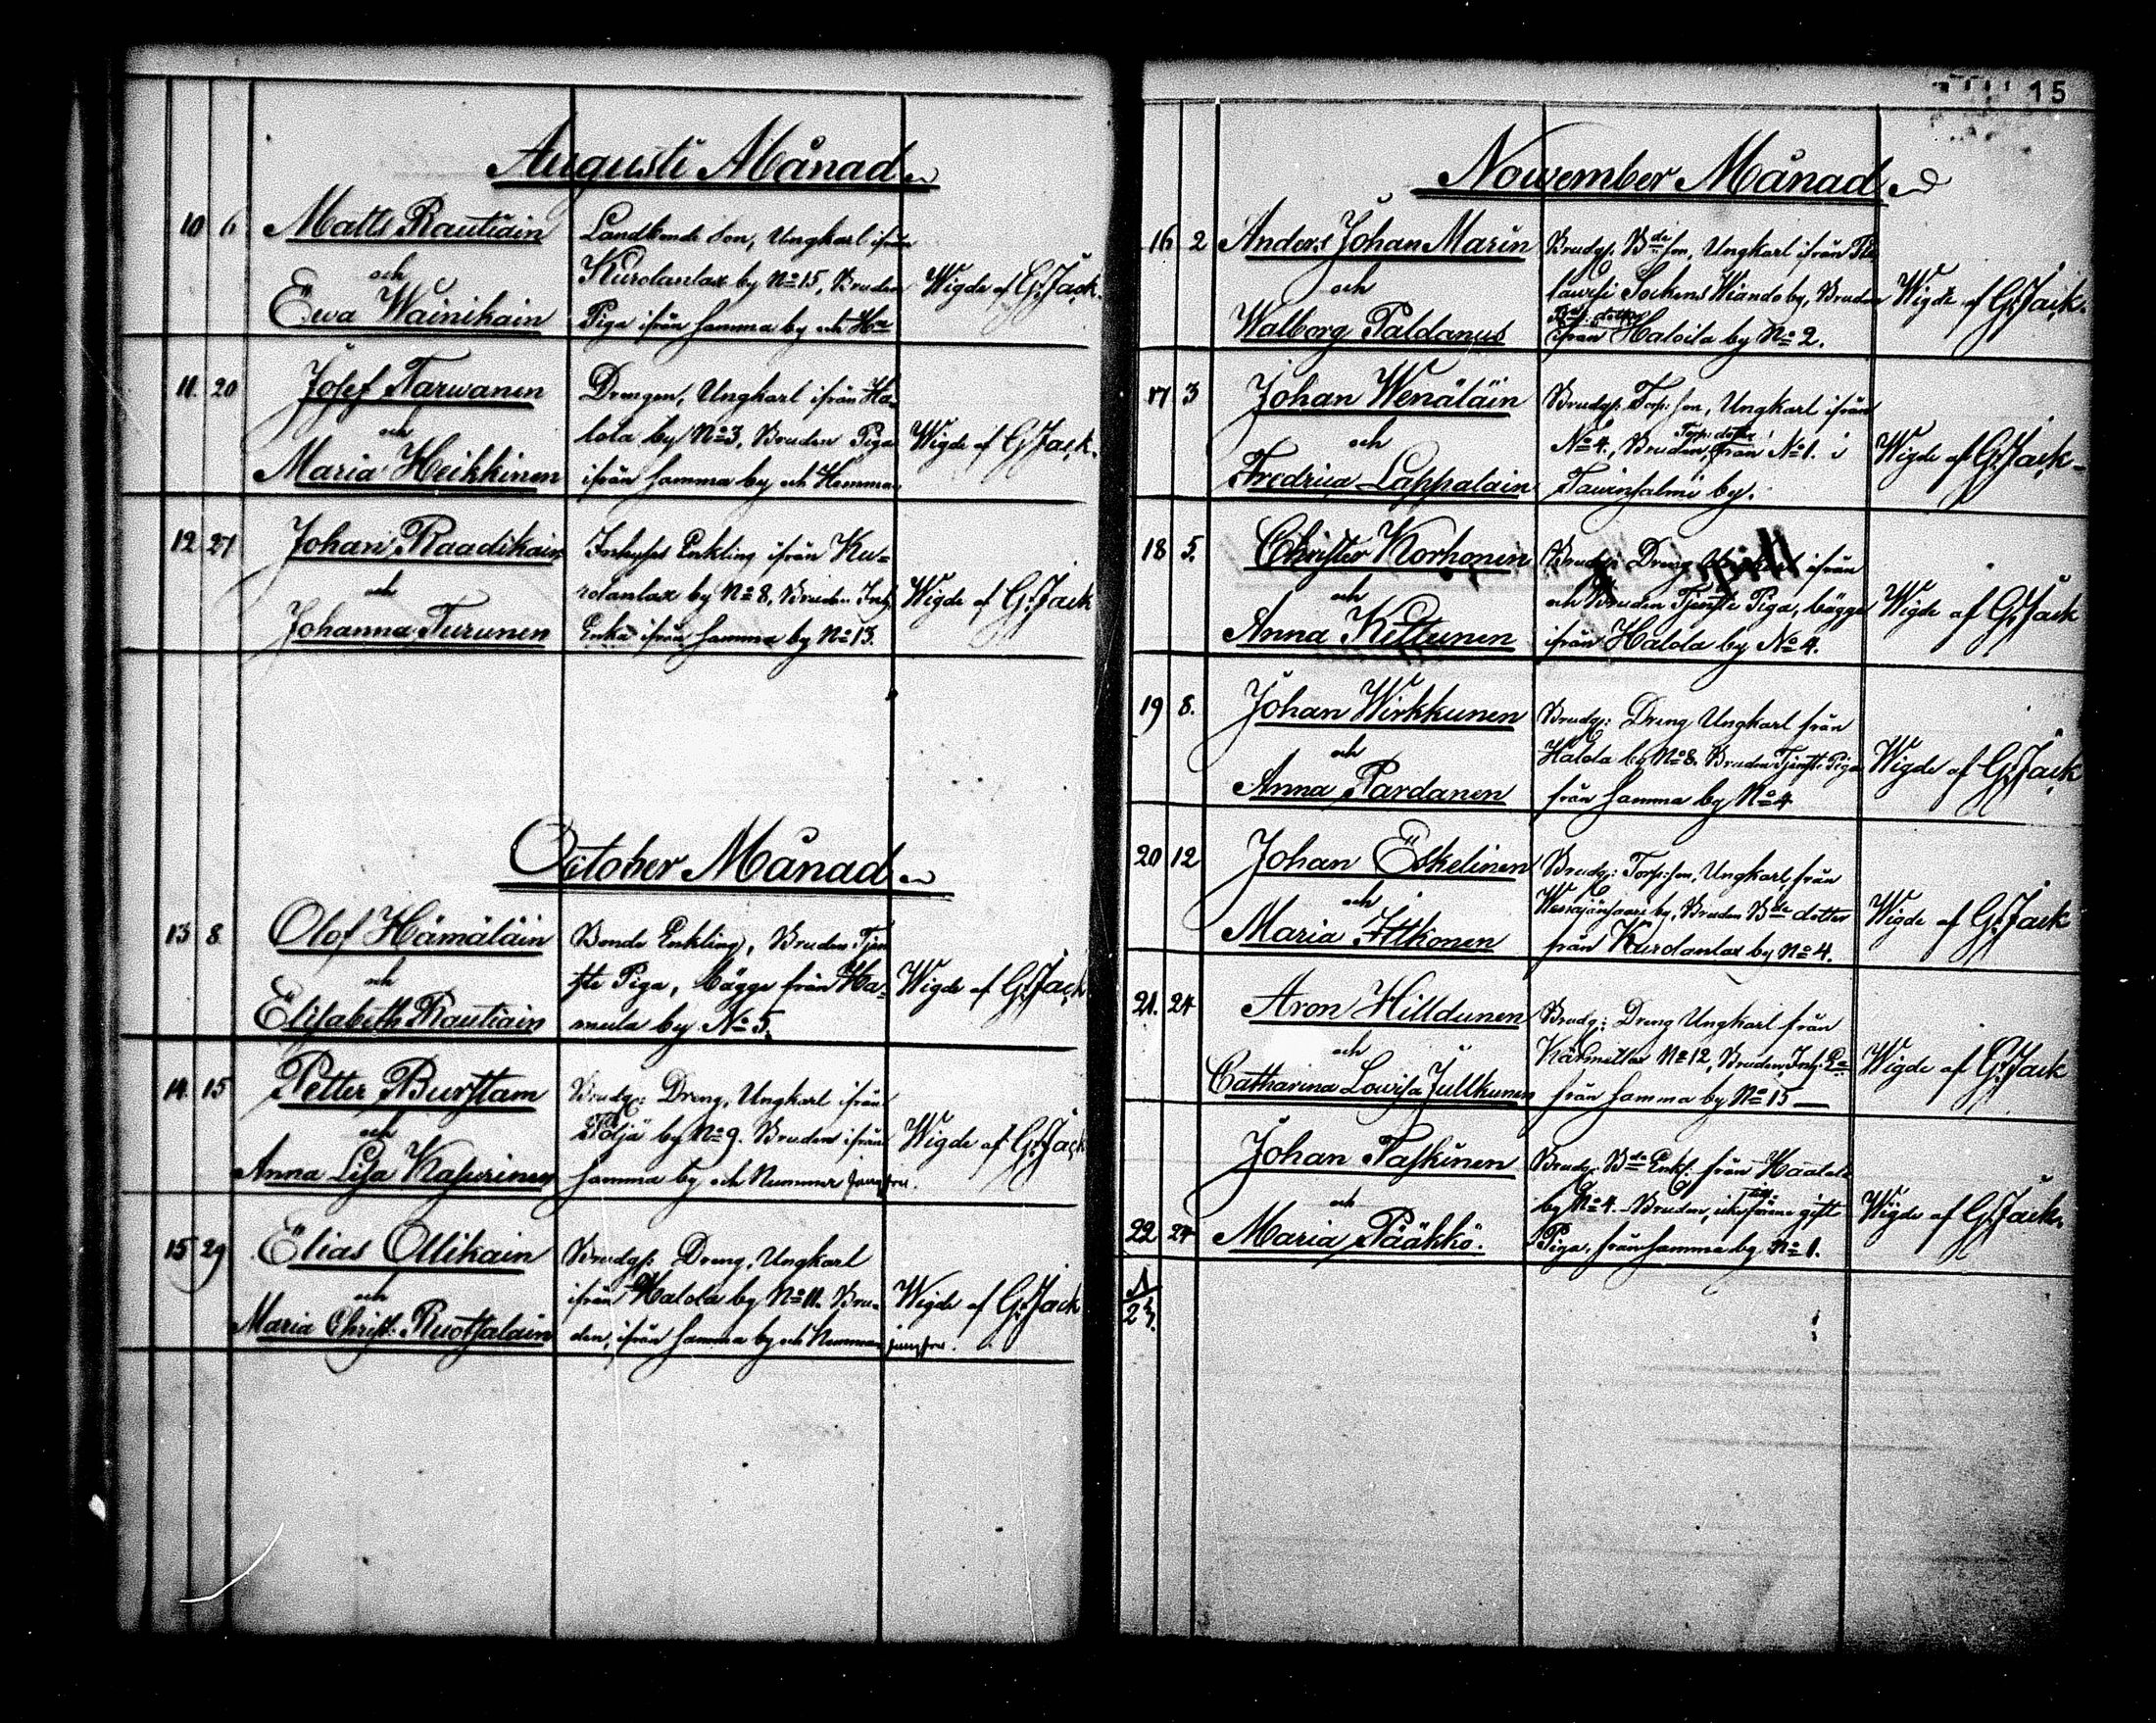 Augusti Månad
10 6 Matts Rautiain
och
Ewa Wäinikain
Landbonde Son, Ungkarl ifrån
Kurolanlax by No 15, Bruden
Piga ifrån samma by och Hn
Wigde af G. Jack.
11. 20 Josef Tarwanen
och
Maria Heikkinen
Drengen, Ungkarl ifrån Ha-
lola by No 3, Bruden Piga
ifrån samma by och Hemman
Wigde af G. Jack.
12 27 Johan Raadikain
och
Johanna Turunen
Inhyses Enkling ifrån Ku-
rolanlax by No 8, Bruden Inh.
Enka ifrån samma by No 13.
Wigde af G. Jack
October Månad
13 8 Olof Hämäläin
och
Elisabeth Rautiain
Bonde Enkling, Bruden Tjen
ste Piga, bägge från Ha-
mula by No 5.
Wigde af G. Jack
14 15 Petter Burstam
och
Anna Lisa Kasurinen
Brudg: Dreng, Ungkarl ifrån
Pöljä by No 9. Bruden ifrån
samma by och Nummer jungfru.
Wigde af G. Jack
15 29 Elias Ollikain
och
Maria Christ: Ruotsalain
Brudg: Dreng, Ungkarl
ifrån Halola by No 11. Bru-
den, ifrån samma by och Hemman jungfru.
Wigde af G. Jack
15
November Månad
16 2 Anders Johan Marin
och
Walborg Paldanus
Brudg. Bde son, Ungkarl ifrån
Sockens Wiando by, Bruden
dotter
ifrån Haloila by No 2.
Wigde af G. Jack.
17 3 Johan Wenäläin
och
Fredrica Lappalain
Brudg: Torp: son, Ungkarl ifrån
Torp: dotter
No 4., Bruden, från No 1. i
Tawinsalmi by.
Wigde af G. Jack
18 5. Christer Korhonen
och
Anna Kettunen
Brudg: Dreng Ungkarl ifrån
och Bruden Tjenste Piga, bägge
ifrån Halola by No 4.
Wigde af G. Jack
19 8. Johan Wirkkunen
och
Anna Pardanen
Brudg: Dreng Ungkarl från
Halola by No 8. Bruden Tjenste Piga
från samma by No 4
Wigde af G. Jack
20 12 Johan Eskelinen
och
Maria Ittkonen
Brudg: Torp: son, Ungkarl, från
by, Bruden Bde dotter
från Kurolanlax by No 4.
Wigde af G. Jack
21. 24 Aron Hilldunen
och
Catharina Lowisa Jullkunen
Brudg: Dreng Ungkarl från
No 12, Bruden, Inh:
från samma by No 15
Wigde af G. Jack
22 24 Johan Taskinen
och
Maria Pääkkö.
Brudg. Bde Enkl. från Haalola
by No 4. Bruden, icke förene gift
Piga, från samma by No 1.
Wigde af G. Jack.